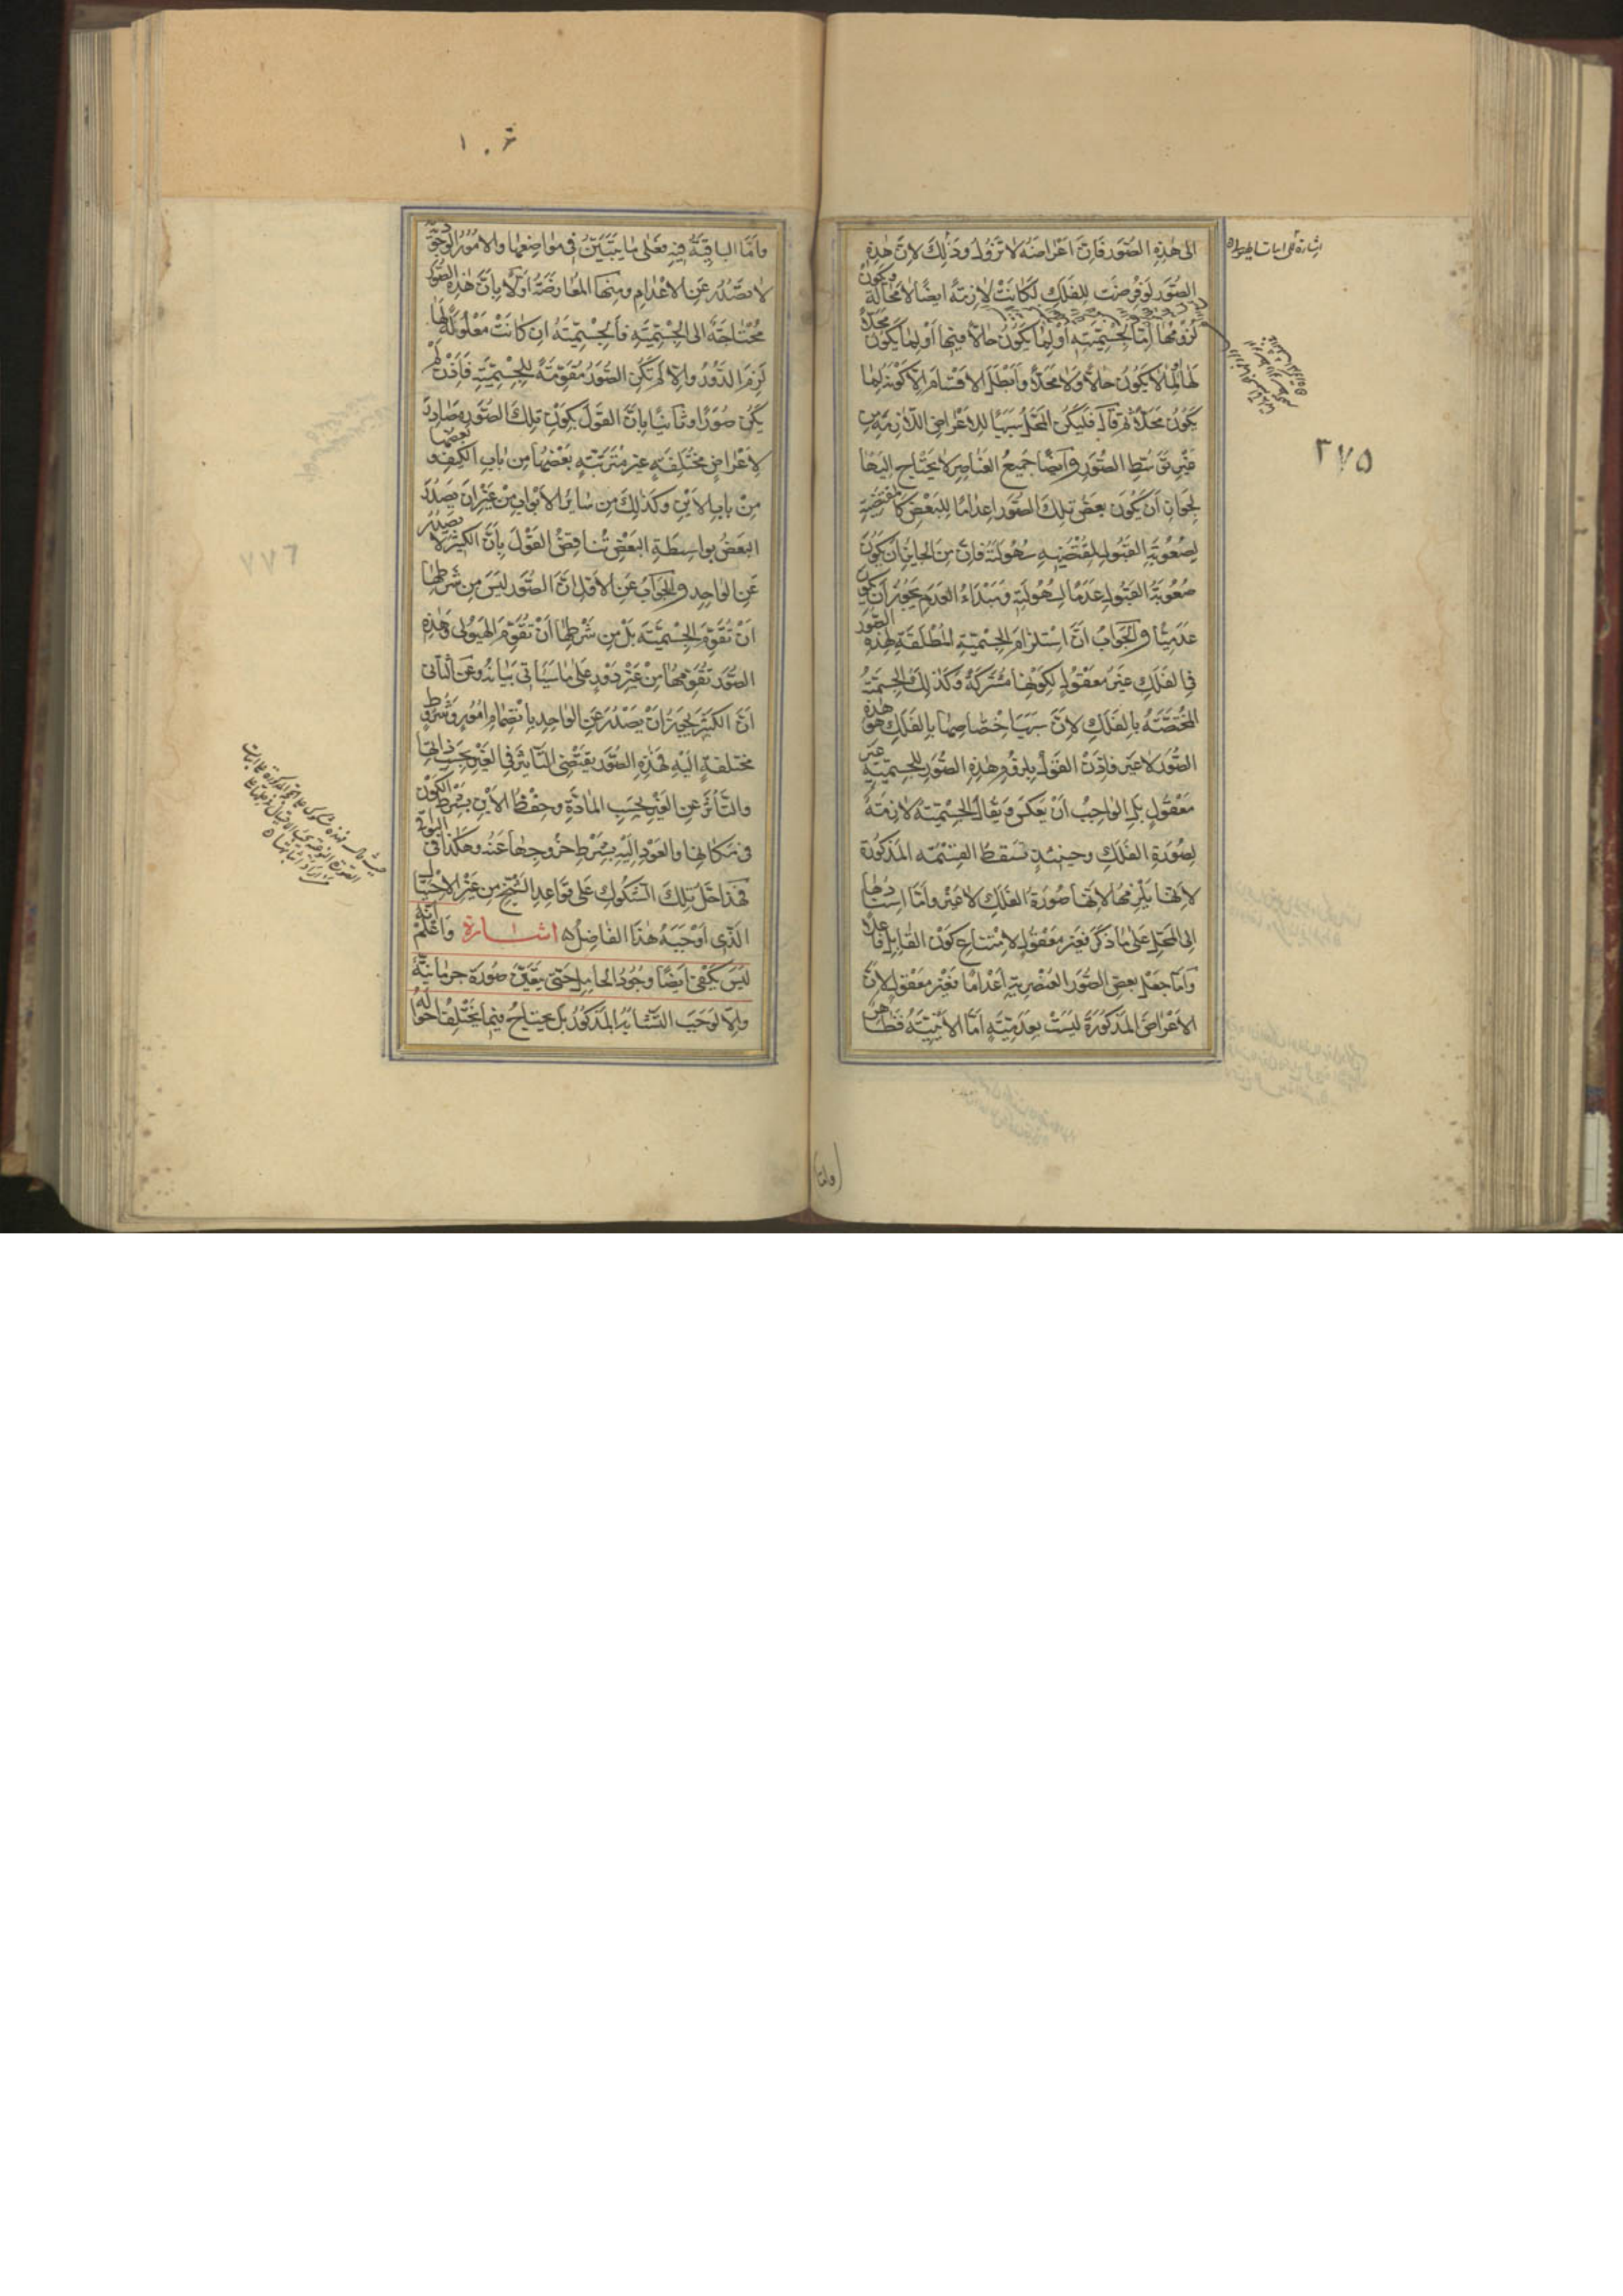 الى هٰذِهِ الصُّوَر فَاِنَّ اَعْراضَهُ لا تَزُولُ وذٰلِكَ لِانَّ هٰذِهِ
الصُّوَر لَو فُرِضَت لِلفَلَكِ لَكانَتْ لازِمَةً ايضًا لا مَحٰالة ويكونُ
لُزُومُهٰا اِمّا لِجِسْمِيَّتِهِ اَوْ لِمٰا يَكُونُ حٰالاًّ فيهٰا اَوْ لِمٰا يَكُونُ مَحَلاًّ
لَهٰا اَوْ لِمٰا لا يَكُونُ حٰالاًّ وَلا مَحَلاًّ واَبْطَلَ الاَقْسٰامَ اِلاّ كَوْنَهُ لِمٰا
يَكُونُ مَحَلاًّ ثُمَّ قٰالَ فَليَكُن المَحَلُّ سَبَبًا لِلاَعْرٰاضِ اللّازِمَةِ مِن
غَيْرِ تَوَسُّطِ الصُّوَرِ وَاَيضًا جَميعُ العَنٰاصِرِ لا يَحْتٰاج اِلَيْهٰا
لِجَوٰازِ اَن يَكُونَ بَعضُ تِلكَ الصُّوَر اِعدٰامًا لِلبَعْضِ كَالمُقتَضِيَةِ
لِصُعُوبَةِ القَبُولِ لِمُقْتَضِيَةِ سُهُولَتِهِ فَاِنَّ مِنَ الجٰايِزِ اَنْ يَكُونَ
صُعُوبَةُ القَبُولِ عَدَمًا لِسُهُولَتِهِ ومَبْدَاءُ العَدَمِ يَجُوزُ اَنْ يَكُونَ
عَدَمِيًّا والجَوٰابُ اَنَّ اسْتِلزٰامَ الجِسْمِيَّةِ المُطْلَقَةِ لِهٰذِهِ الصُّوَر
فِى الفَلَكِ غَيْرُ مَعْقُولٍ لِكَوْنِهٰا مُشْتَرَكَةً وكَذٰلِكَ الجِسْمِيَّةُ
المُخْتَصَّةُ بِالفَلَكِ لِاَنَّ سَبَبَ اخْتِصٰاصِهٰا بِالفَلَكِ هُوَ هٰذِهِ
الصُّوَر لا غَير فَاِذَنْ القَوْلُ بِلزُومِ هٰذِهِ الصُّوَرِ لِلجِسمِيَّةِ غَير
مَعْقُولٍ بَلِ الوٰاجِبُ اَنْ يُعْكَسَ ويُقٰالَ الجِسْمِيَّةُ لازِمَةٌ
لِصُورَةِ الفَلَكِ وحِينَئِذٍ تَسقُطُ القِسْمَة المَذكُورَة
لِاَنَّهٰا يَلْزمُهٰا لِاَنَّهٰا صُورَةُ الفَلَكِ لا غَيْر واَمّا اسنٰادُهٰا
اِلى المَحَلِّ عَلى مٰا ذَكَرَ فَغَير مَعْقُولٍ لِامْتِنٰاعِ كَوْن القٰابِلِ فٰاعلاً
وَاَمّا جَعْل بَعضِ الصُّوَر العُنْصُرِيَةِ اَعْدٰامًا فَغَيْر مَعْقُولٍ لِاَنَّ
الاَعْرٰاضَ المَذكُورَةَ لَيْسَتْ بِعَدَمِيَّةٍ اَمّا الاَيْنِيَّةُ فَظٰاهِرٌ
٢٧٥
(واما)
١٠
واَمّا البٰاقِيَةُ فَعَلى مٰا يَتَبَيَّنُ فى مَوٰاضِعِهٰا والاُمُورُ الوُجُودِيَّةُ
لا تَصْدُرُ عَنِ الاَعْدٰامِ ومِنْهَا المُعٰارَضَةُ اَوّلاً بِاَنَّ هٰذِهِ الصُّوَر
مُحْتٰاجَةٌ اِلى الجِسْمِيَّةِ فَالجِسْمِيَّةُ اِن كٰانَتْ مَعْلُولَةً لَهٰا
لَزِمَ الدَّوْرُ وَاِلاّ لَمْ تَكُنِ الصُّوَرُ مُقَوِّمَةً لِلجِسْمِيَّةِ فَاِذَنْ لَمْ
يَكُنْ صُوَرًا وثٰانِيًا بِاَنَّ القَوْلَ بِكَوْنِ تِلكَ الصُّوَرِ مَصٰادِرَ
لِاَعْرٰاضٍ مُخْتَلِفَةٍ غَيْرِ مُتَرَتِّبَةٍ بَعْضُهٰا مِن بٰابِ الكَيفِ وبَعضُهٰا
مِنْ بٰابِ الاَيْنِ وكَذٰلِكَ مِن سٰايِرِ الاَبْوٰابِ مِنْ غَيْرِ اَنْ يَصْدُرَ
البَعْضُ بِوٰاسِطَةِ البَعْضِ تُنٰاقِضُ القَوْلَ بِاَنَّ الكَثِيرَ لا يَصْدُرُ
عَنِ الوٰاحِدِ والجَوٰابُ عَنِ الاَوَّل انَّ الصُّوَر لَيْسَ مِن شَرْطِهٰا
اَنْ تُقَوِّمَ الجِسْمِيَّةَ بَلْ مِن شَرْطِهٰا اَنْ تُقَوِّمَ الهَيُولى وَهٰذِهِ
الصُّوَر تُقَوِّمُهٰا مِنْ غَيْرِ دَوْرٍ عَلى مٰا سَيَاتى بَيٰانهُ وعَنِ الثّٰانى
اَنَّ الكَثيرَ يَجُوزُ اَنْ يَصْدُرَ عَنِ الوٰاحِدِ بِانْضِمٰامِ اُمُورٍ وشُرُوطٍ
مُختَلِفَةٍ اِلَيْهِ فَهٰذِهِ الصُّوَر يَقتَضِى التَّأثِيرَ فِى الغَيْرِ بِحَسَبِ ذٰاتِهٰا
والتَّأثُّرَ عَنِ الغَيْرِ بِحَسَبِ المٰادَّةِ وحِفْظَ الاَيْنِ بِشَرْطِ الكَوْنِ
فى مَكٰانِهٰا والعَوْدَ اِلَيْهِ بِشَرْطِ خُرُوجِهٰا عَنْهُ وهٰكَذٰا فى البَوٰاقى
فَهٰذٰا حَلُّ تِلكَ الشُّكُوكِ عَلى قَوٰاعِدِ الشَّيْخِ مِن غَيْرِ الاحْتِيٰاجِ
الَّذى اَوْجَبَهُ هٰذَا الفٰاضِلُ اشارة وَاعْلَمْ اَنَّهُ
لَيْسَ يَكْفِى اَيضًا وُجُودُ الحٰامِلِ حَتّى تَتَعَيَّنَ صُورَة جِرمٰانِيَّةٌ
وَاِلاّ لَوَجَبَ التَّشٰابُهُ المَذكُورُ بَل يَحتٰاجُ فيمٰا يَخْتَلِفُ احْوٰالُهُ